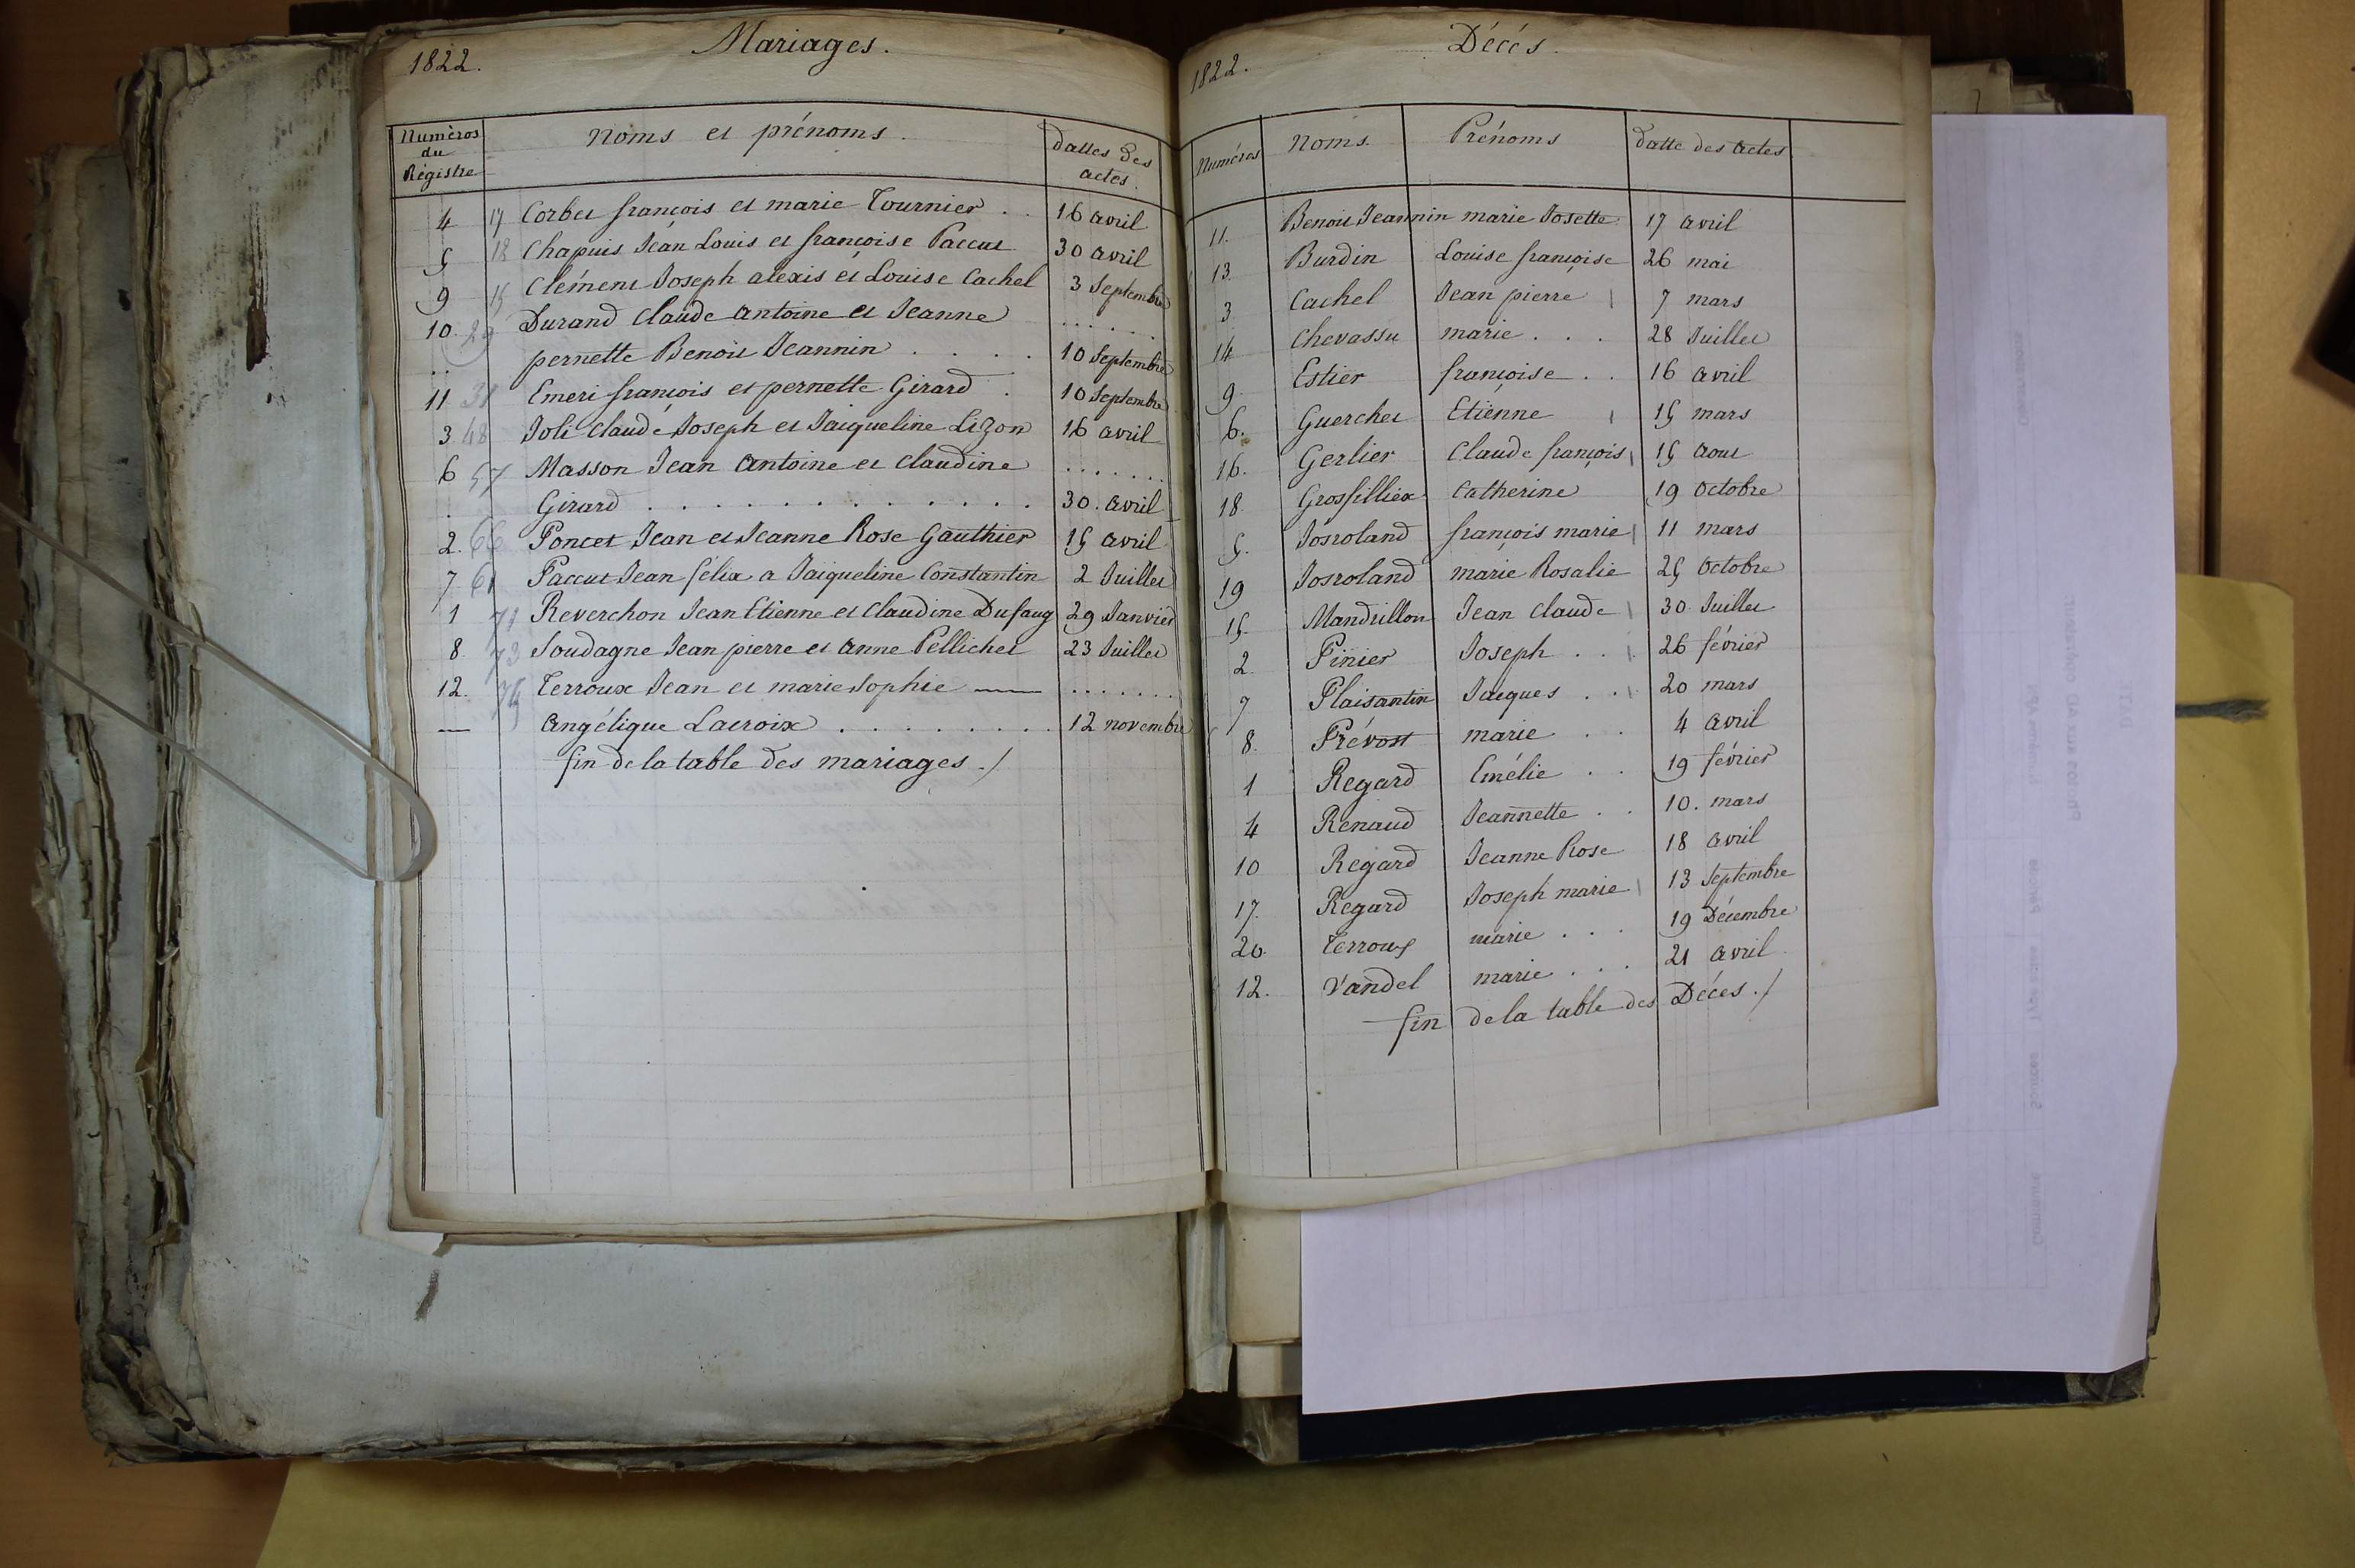 1822.
Mariages.
Numéros du Régistre
Noms et prénoms.
Dattes des actes.
4 17 Corbet françois et marie Tournier . . 16 avril
5 18 Chapuis Jean Louis et françoise Paccut 30 avril
9 Clément Joseph alexis et Louise Cachel 3 Septembre
10. 29 Durand Claude antoine et Jeanne . . . . . .
. . pernette Benoit Jeannin . . . . 10 Septembre
11 31 Emeri françois et pernette Girard . 10 Septembre
3 48 Joli Claude Joseph et Jaiqueline Lizon 16 avril
6 57 Masson Jean antoine et claudine . . . . . .
. Girard . . . . . . . . . . . 30. avril
2. 66 Poncet Jean et Jeanne Rose Gauthier 15 avril
7 61 Paccut Jean félix a Jaiqueline Constantin 2 Juillet
1 71 Reverchon Jean Etienne et Claudine Dufaug 29 Janvier
8 73 Soudagne Jean pierre et anne Pellichet 23 Juillet
12. 75 Terroux Jean et marie Sophie — . . . . . . .
— angélique Lacroix . . . . . . . . 12 novembre
fin de la table des mariages ./
1822.
Décés.
Numéros
Noms.
Prénoms
Datte des actes
11. Benoit Jeannin marie Josette. 17 avril
13. Burdin Louise françoise 26 mai
3 Cachel Jean pierre 7 mars
14 Chevassu marie . . . 28 Juillet
9. Estier françoise . . 16 avril
6. Guerchet Etienne 15 mars
16. Gerlier Claude françois 15 aout
18. Grosfilliex Catherine 19 octobre
5. Josroland françois marie 11 mars
19 Josroland marie Rosalie 25 octobre
15. Mandrillon Jean Claude 30 Juillet
2. Pinier Joseph . . 26 février
7 Plaisantin Jacques . . 20 mars
8. Prévost marie . . . 4 avril
1 Regard Emélie . . 19 février
4 Renaud Jeannette . . 10. mars
10 Regard Jeanne Rose 18 avril
17. Regard Joseph marie 13 Septembre
20. Terroux marie . . . 19 Décembre
12. Vandel marie . . . 21 avril
fin de la table des Décés ./